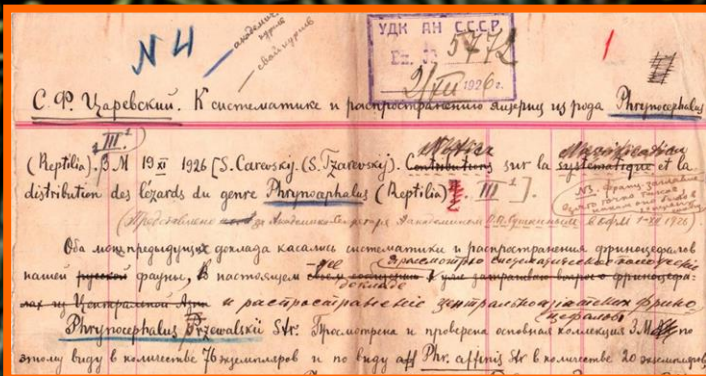 N 4
академич. курсив
свой курсив
УДК АН С.С.С.Р.
Вх. № 5772
2/XII 1926 г.
1
С. Ф. Царевский. К систематике и распространению ящериц из рода Phrynocephalus
(Reptilia). III. З.М 19 XI 1926 [S. Carevskij. (S. Tzarevskij). Contributions sur la systematique et la
distribution des lézards du genre Phrynocephalus (Reptilia). III].
(Представлено за Академика-Секретаря Академиком П.П. Сушкиным в ОФМ 1-XII 1926)
Оба мои предыдущие доклада касались систематики и распространения фриноцефалов
нашей русской фауны, в настоящем докладе
и распространение центрально-азиатских фрино
цефалов
Phrynocephalus Przewalskii Str. Просмотрена и проверена основная коллекция З.М по
этому виду в количестве 76 экземпляров и по виду aff Phr. affinis Str в количестве 20 экземпляров